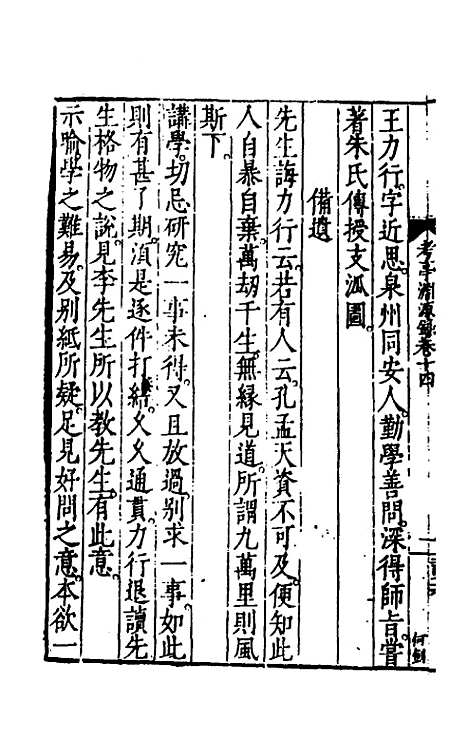 考亭淵源錄卷十四
王力行字近思泉州同安人勤學善問深得師旨嘗
著朱氏傳授支泒圖
備遺
先生誨力行云若有人云孔孟天資不可及便知此
人自暴自棄萬劫千生無緣見道所謂九萬里則風
斯下
講學切忌研究一事未得又且放過别求一事如此
則有甚了期湏是逐件打結久久通貫力行退讀先
生格物之說見李先生所以教先生有此意
示喻學之難易及别紙所疑足見好問之意本欲一